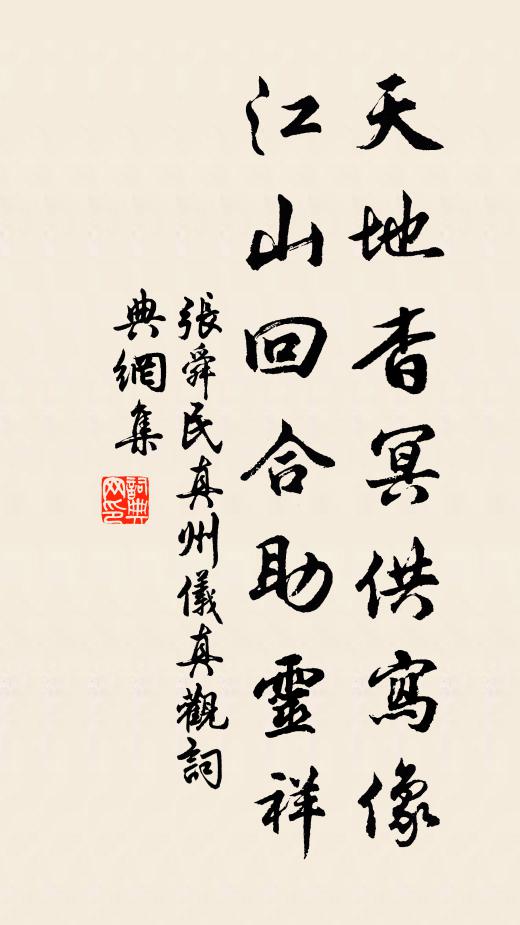 天地杳冥供寫像
江山回合助靈祥
張舜民真州儀真觀詞
典網集
詞典网印